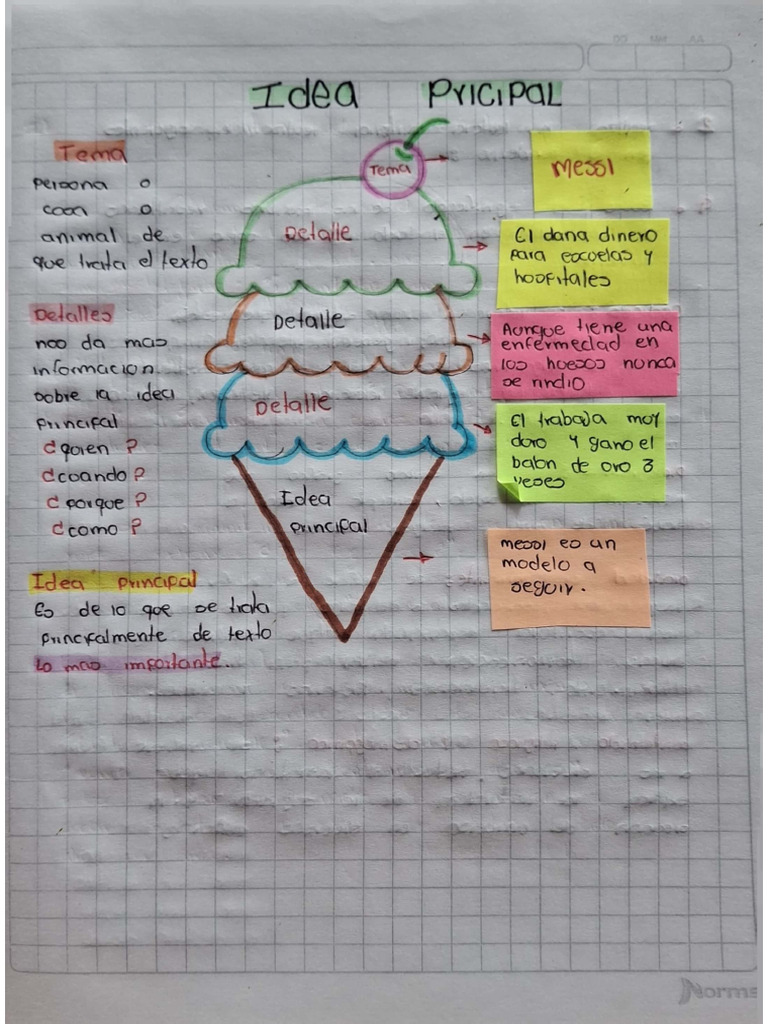 Idea PRICIPAL
Tema
persona o
cosa o
animal de
que trata el texto
Detalles
nos da mas
informacion
sobre la idea
principal
¿quien?
¿cuando?
¿porque?
¿como?
Idea principal
Es de lo que se trata
principalmente de texto
Lo mas importante.
Tema
Detalle
Detalle
Detalle
Idea
principal
Messi
El dana dinero
para escuelas y
hospitales
Aunque tiene una
enfermedad en
los huesos nunca
se rindio
El trabaja moy
doro y gano el
balon de oro 3
veses
messi es un
modelo a
seguir.
Norma